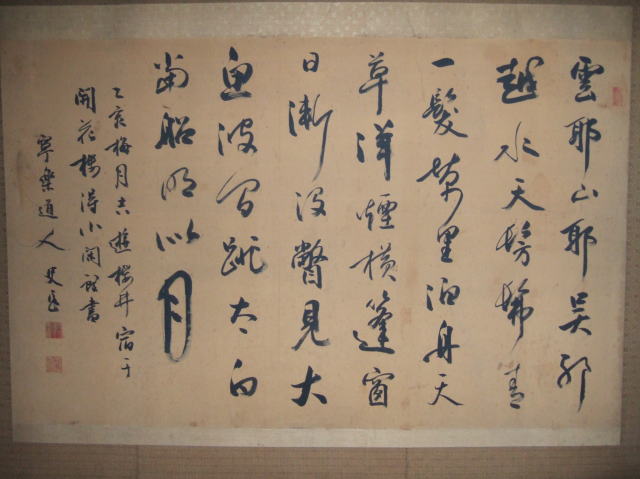 雲耶山耶吴耶
越水天髣髴青
一髮萬里泊舟天
草洋煙横篷窗
日漸没瞥見大
魚波間跳太白
當船明似月
乙亥梅月 遊 井宿于
開花楼得小閑 書
寧樂道人